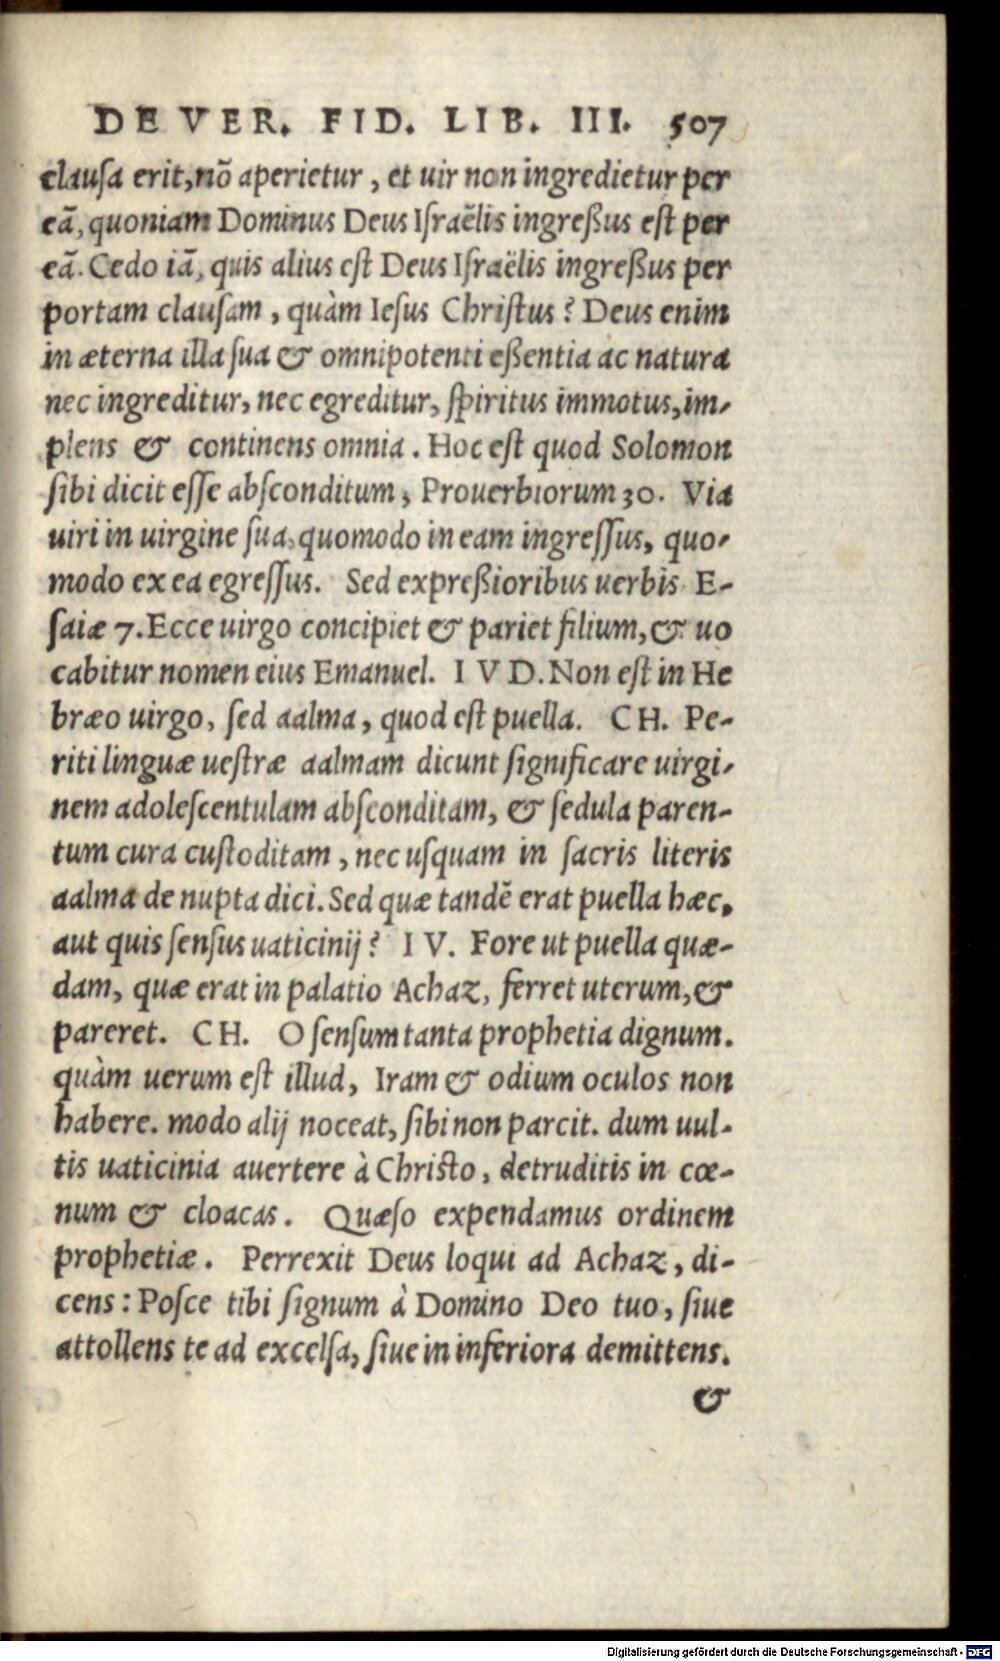 DE VER. FID. LIB. III. 507
clauſa erit, nõ aperietur, et uir non ingredietur per
eā, quoniam Dominus Deus Iſraëlis ingreßus eſt per
eā. Cedo iā, quis alius eſt Deus Iſraëlis ingreßus per
portam clauſam, quàm Ieſus Chriſtus? Deus enim
in æterna illa ſua & omnipotenti eßentia ac natura
nec ingreditur, nec egreditur, ſpiritus immotus, im-
plens & continens omnia. Hoc eſt quod Solomon
ſibi dicit eſſe abſconditum, Prouerbiorum 30. Via
uiri in uirgine ſua, quomodo in eam ingreſſus, quo-
modo ex ea egreſſus. Sed expreßioribus uerbis E-
ſaiæ 7. Ecce uirgo concipiet & pariet filium, & uo
cabitur nomen eius Emanuel. I V D. Non eſt in He
bræo uirgo, ſed aalma, quod eſt puella. CH. Pe-
riti linguæ ueſtræ aalmam dicunt ſignificare uirgi-
nem adoleſcentulam abſconditam, & ſedula paren-
tum cura cuſtoditam, nec uſquam in ſacris literis
aalma de nupta dici. Sed quæ tandē erat puella hæc,
aut quis ſenſus uaticinij? I V. Fore ut puella quæ-
dam, quæ erat in palatio Achaz, ferret uterum, &
pareret. CH. O ſenſum tanta prophetia dignum.
quàm uerum eſt illud, Iram & odium oculos non
habere. modo alij noceat, ſibi non parcit. dum uul-
tis uaticinia auertere à Chriſto, detruditis in cœ-
num & cloacas. Quæſo expendamus ordinem
prophetiæ. Perrexit Deus loqui ad Achaz, di-
cens: Poſce tibi ſignum à Domino Deo tuo, ſiue
attollens te ad excelſa, ſiue in inferiora demittens.
&
Digitalisierung gefördert durch die Deutsche Forschungsgemeinschaft - DFG